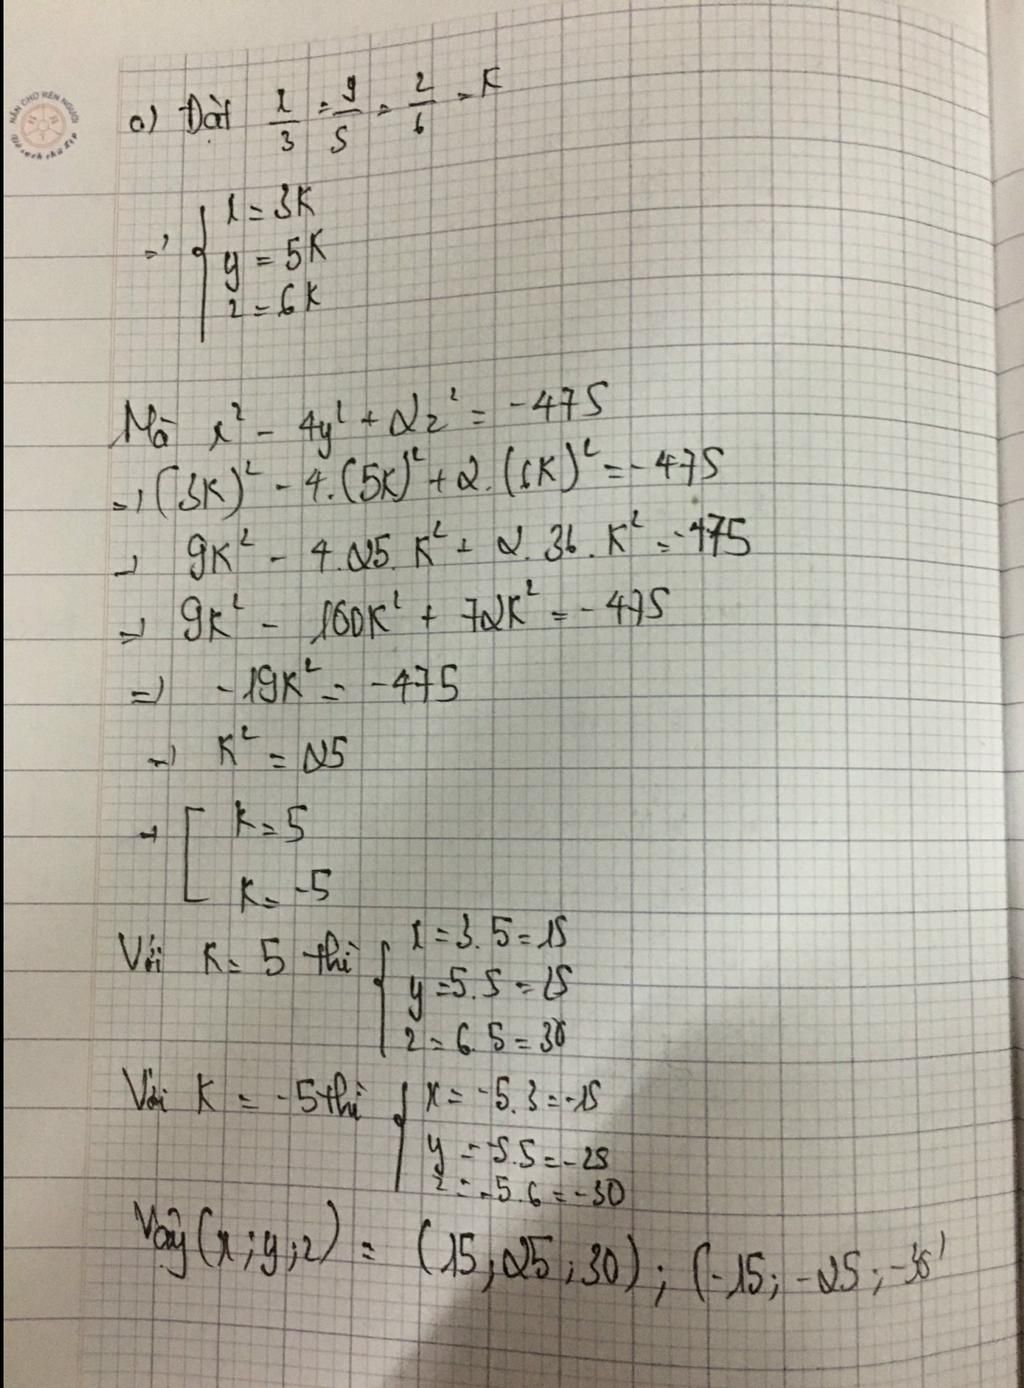 NÂN CHỮ RÈN NGƯỜI
Vở sạch chữ đẹp
a) Đặt x/3 = y/5 = z/6 = K
=> { x = 3K
y = 5K
z = 6K
Mà x² - 4y² + 2z² = -475
=> (3K)² - 4.(5K)² + 2.(6K)² = -475
=> 9K² - 4.25.K² + 2.36.K² = -475
=> 9K² - 100K² + 72K² = -475
=> -19K² = -475
=> K² = 25
=> [ K = 5
K = -5
Với K = 5 thì { x = 3.5 = 15
y = 5.5 = 25
z = 6.5 = 30
Với K = -5 thì { x = -5.3 = -15
y = -5.5 = -25
z = -5.6 = -30
Vậy (x; y; z) = (15; 25; 30); (-15; -25; -30)